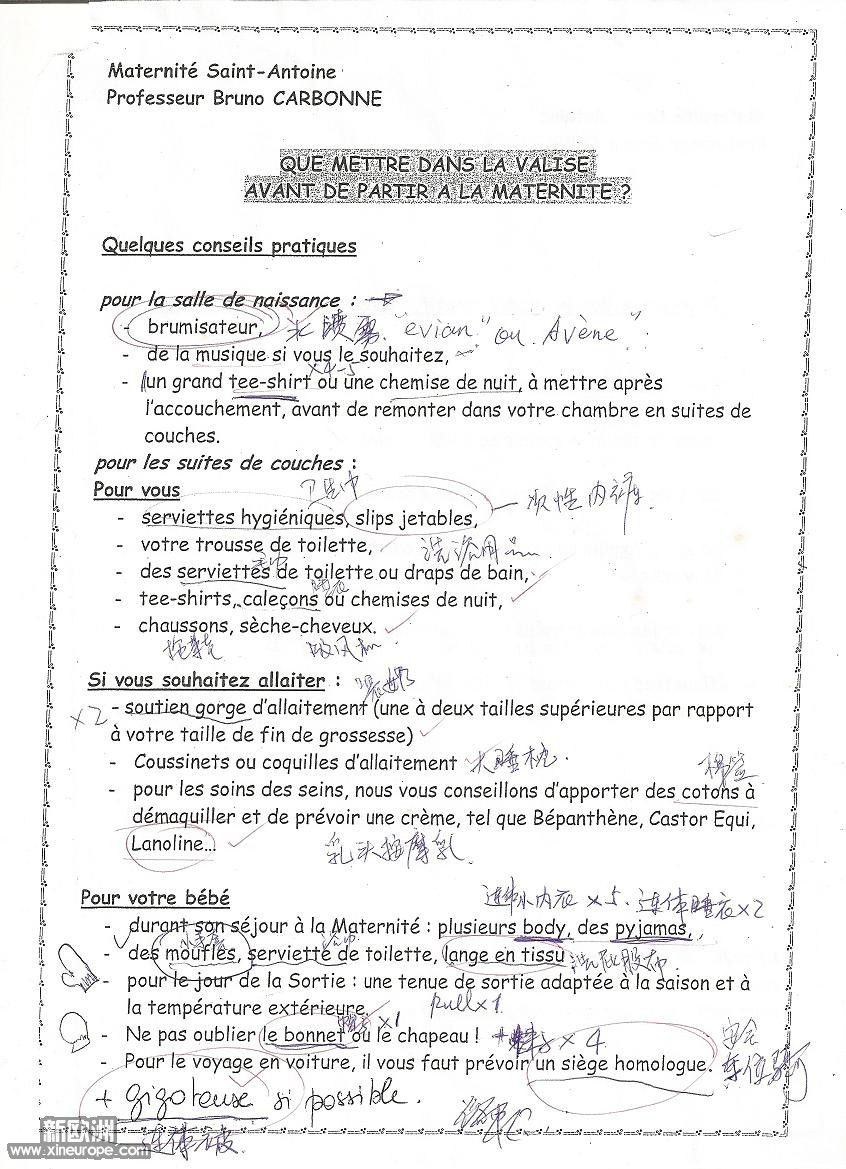 Maternité Saint-Antoine
Professeur Bruno CARBONNE
QUE METTRE DANS LA VALISE
AVANT DE PARTIR A LA MATERNITE ?
Quelques conseils pratiques
pour la salle de naissance :
- brumisateur, 水喷雾 "evian" ou Avène"
- de la musique si vous le souhaitez,
x4-5
- un grand tee-shirt ou une chemise de nuit, à mettre après
l'accouchement, avant de remonter dans votre chambre en suites de
couches.
pour les suites de couches :
Pour vous
卫生巾
- serviettes hygiéniques, slips jetables, 一次性内裤
- votre trousse de toilette, 洗浴用品
- des serviettes de toilette ou draps de bain,
睡衣
- tee-shirts, caleçons ou chemises de nuit,
- chaussons, sèche-cheveux.
拖鞋 吹风机
Si vous souhaitez allaiter :
x2 - soutien gorge d'allaitement (une à deux tailles supérieures par rapport
à votre taille de fin de grossesse)
- Coussinets ou coquilles d'allaitement 大睡枕
- pour les soins des seins, nous vous conseillons d'apporter des cotons à
démaquiller et de prévoir une crème, tel que Bépanthène, Castor Equi,
Lanoline...
乳头按摩乳
Pour votre bébé
连体小内衣 x5、连体睡衣x2
- durant son séjour à la Maternité : plusieurs body, des pyjamas,
- des moufles, serviette de toilette, lange en tissu
- pour le jour de la Sortie : une tenue de sortie adaptée à la saison et à
la température extérieure.
Pull x1
- Ne pas oublier le bonnet ou le chapeau !
帽子 x1
x 4
- Pour le voyage en voiture, il vous faut prévoir un siège homologue.
安全
+ gigoteuse si possible.
新欧洲
www.xineurope.com